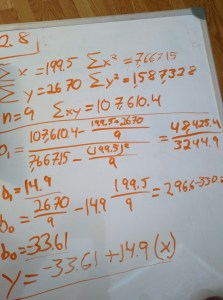 2.8
∑x = 199.5 ∑x² = 7667.15
∑y = 2670 ∑y² = 1587328
n = 9 ∑xy = 107610.4
b₁ = (107610.4 - (199.5×2670)/9) / (7667.15 - (199.5)²/9) = 48425.4/3244.9
b₁ = 14.9
b₀ = 2670/9 - 14.9 199.5/9 = 296.6 - 330.2
b₀ = -33.61
Y = -33.61 + 14.9(x)